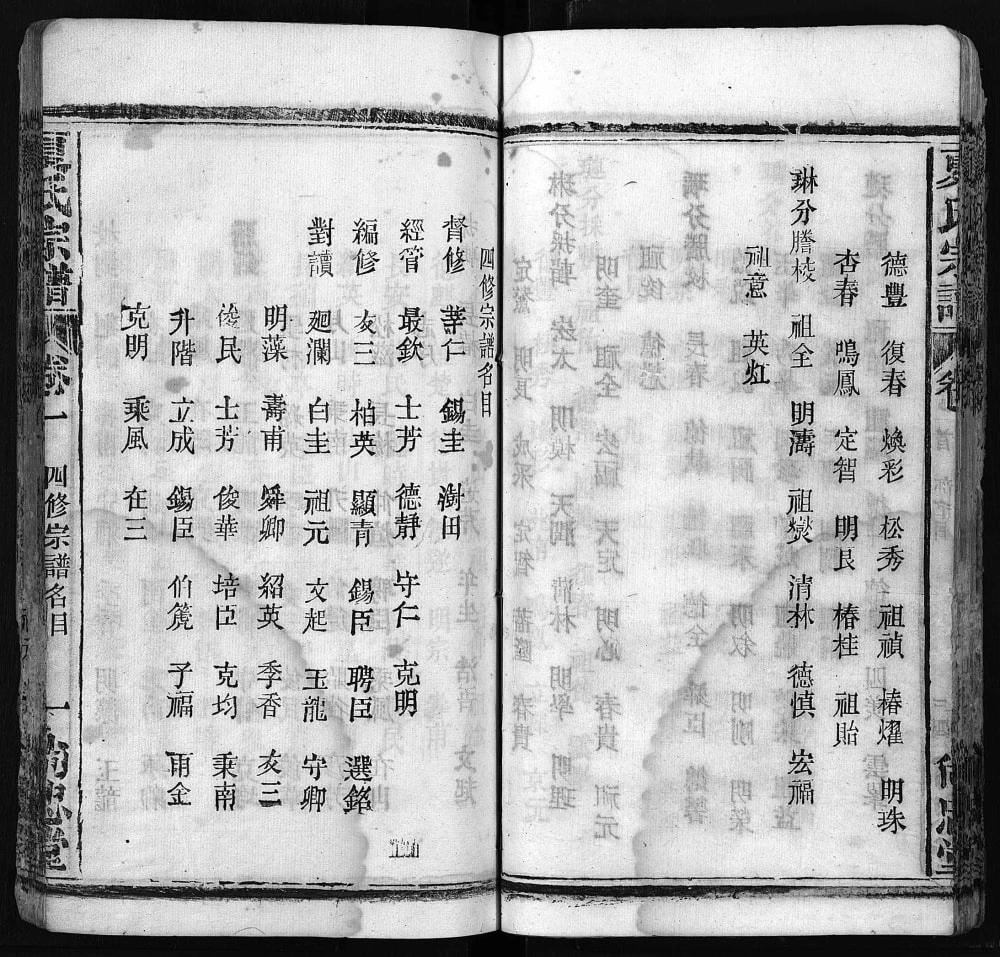 夏氏宗譜
德豐 復春 煥彩 松秀 祖禎 椿燿 明珠
杏春 鳴鳳 定智 明良 椿桂 祖貽
琳分謄梭 祖全 明濤 祖爕 清林 德慎 宏福
祖意 英灴
四修宗譜名目
督修 䓁仁 錫圭 澍田
經管 最欽 士芳 德靜 守仁 克明
編修 友三 柏英 顯青 錫臣 聘臣 選銘
對讀 廻瀾 白圭 祖元 文起 玉龍 守卿
明藻 壽甫 舜卿 紹英 季香 友三
俊民 士芳 俊華 培臣 克均 乘南
升階 立成 錫臣 伯箎 子福 雨金
克明 乘風 在三
夏氏宗譜 卷一 四修宗譜名目 一